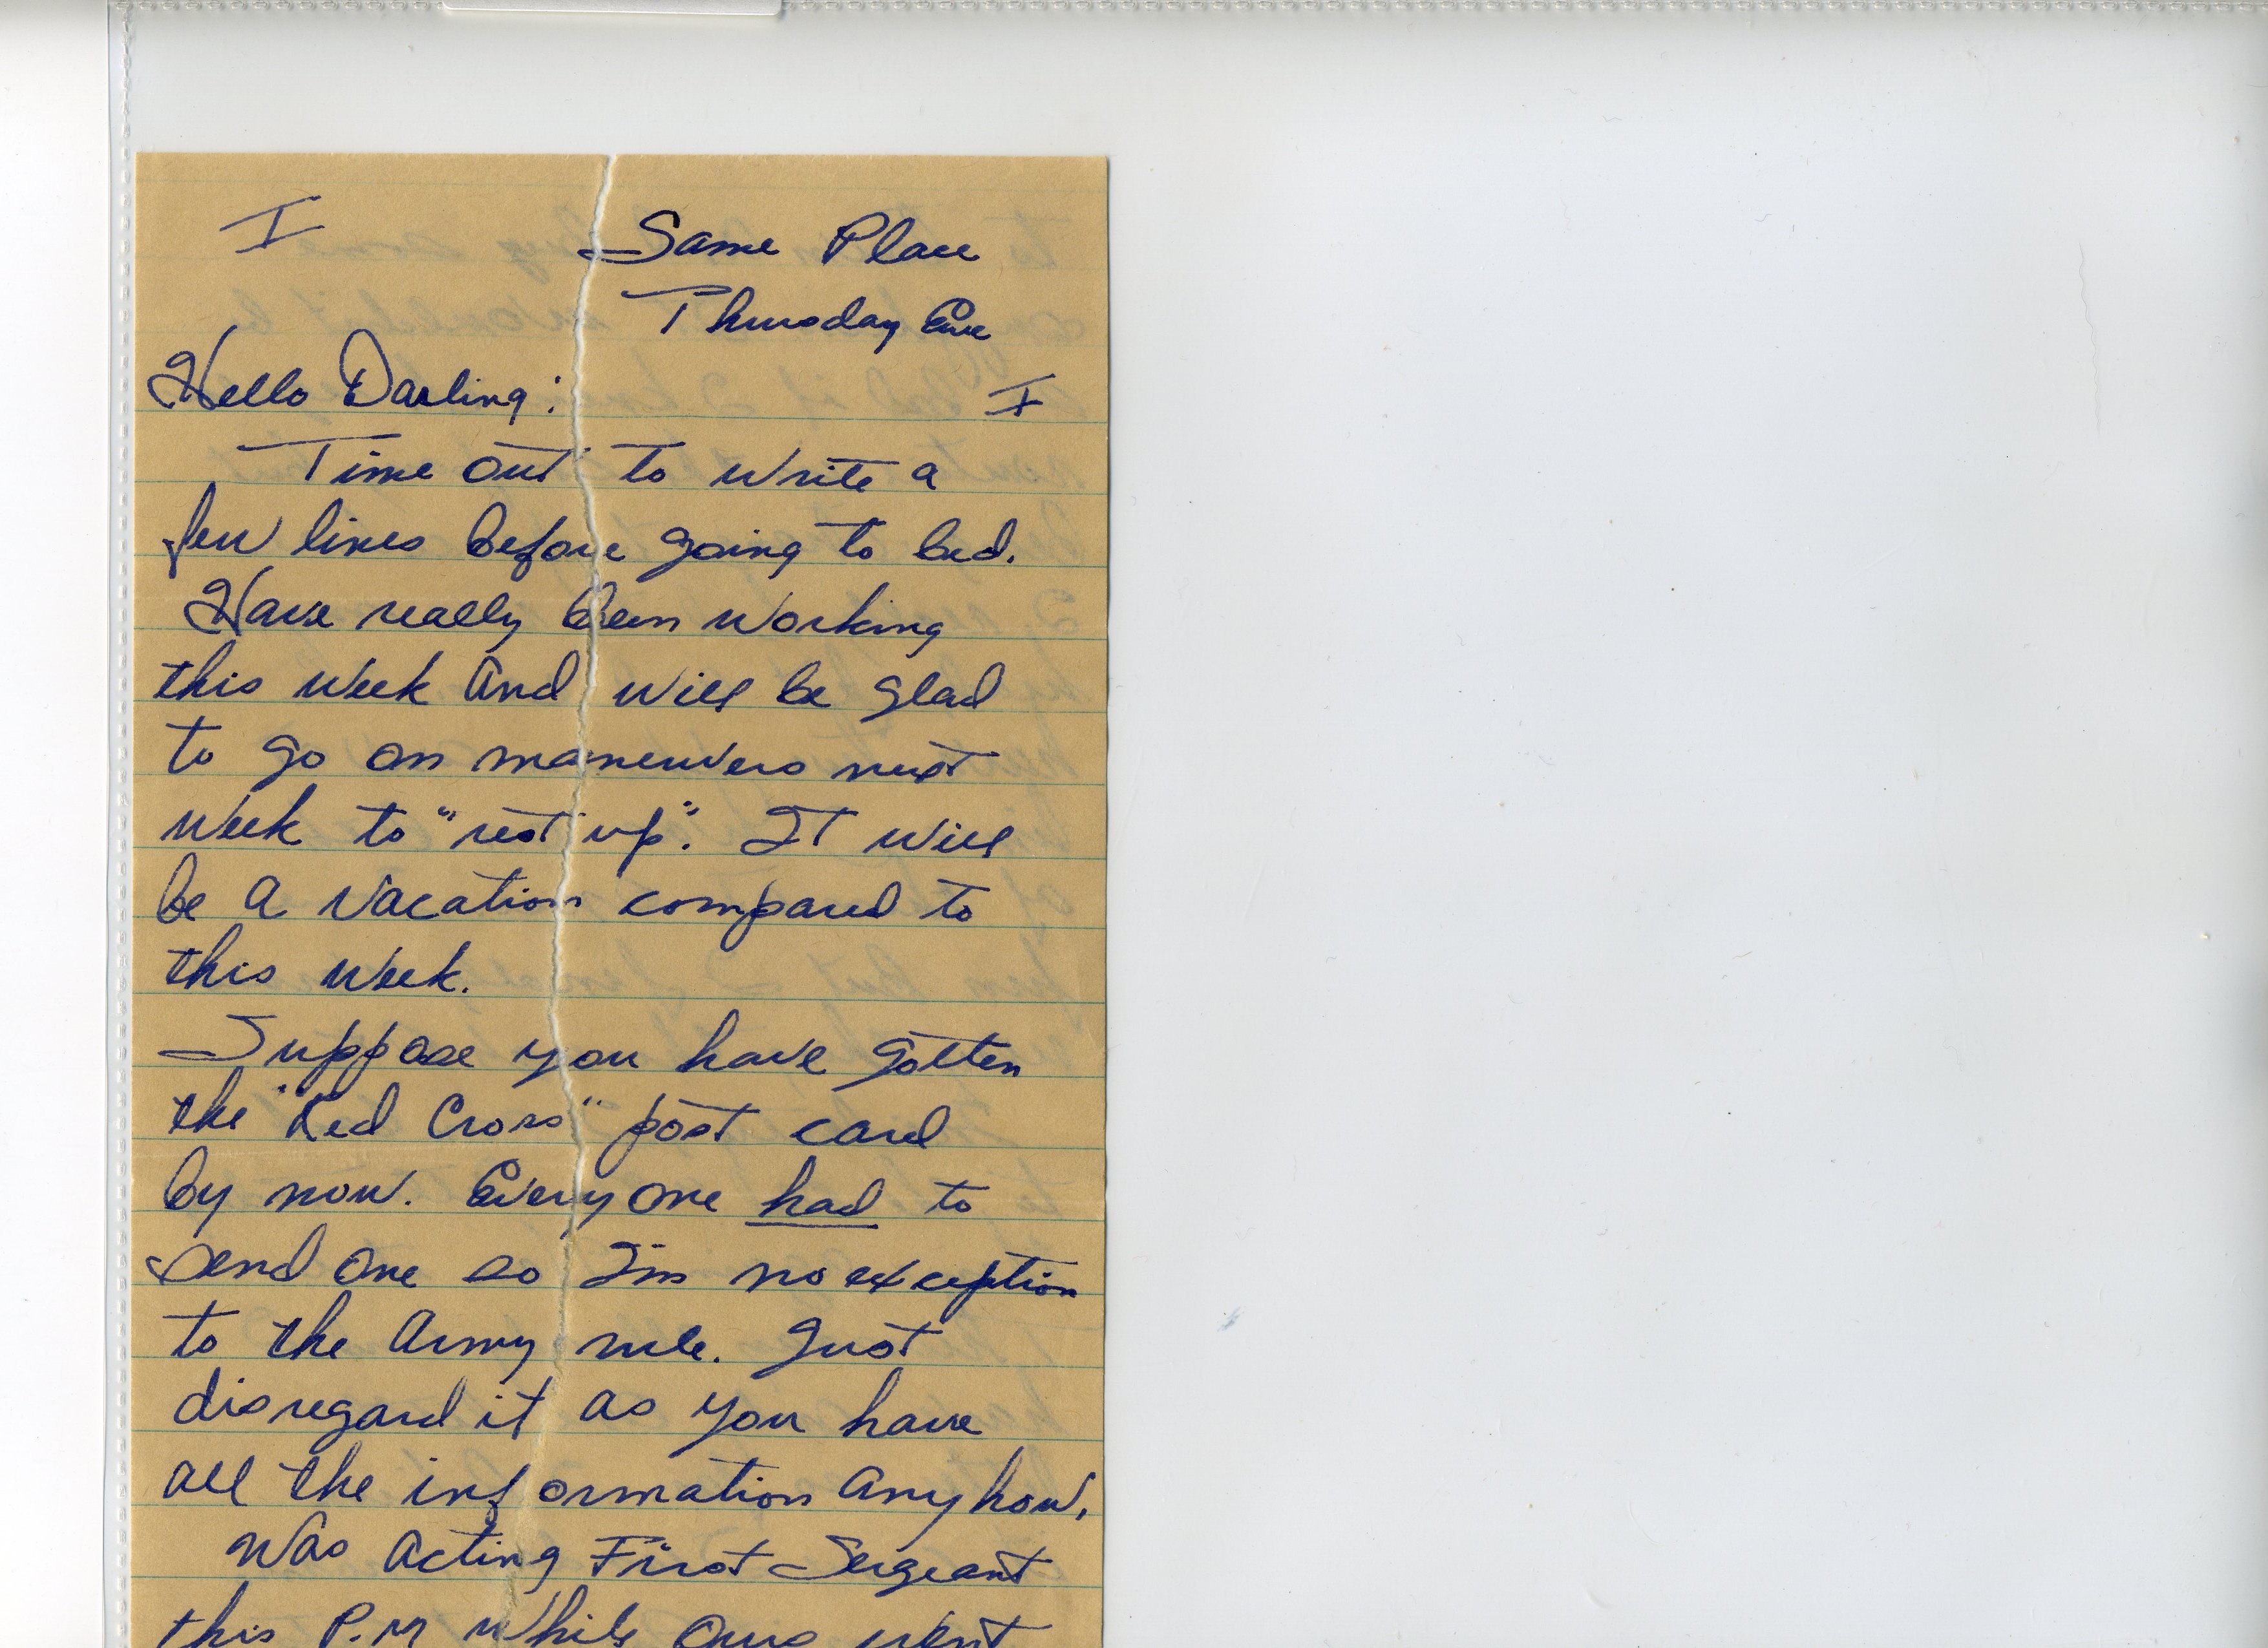 I
Same Place
Thursday Eve
Hello Darling: I
Time out to write a
few lines before going to bed.
Have really been working
this week and will be glad
to go on maneuvers next
week to "rest up". It will
be a vacation compared to
this week.
Suppose you have gotten
the "Red Cross" post card
by now. Everyone had to
send one so I'm no exception
to the Army rule. Just
disregard it as you have
all the information anyhow.
Was acting First Sergeant
this P.M while ours went